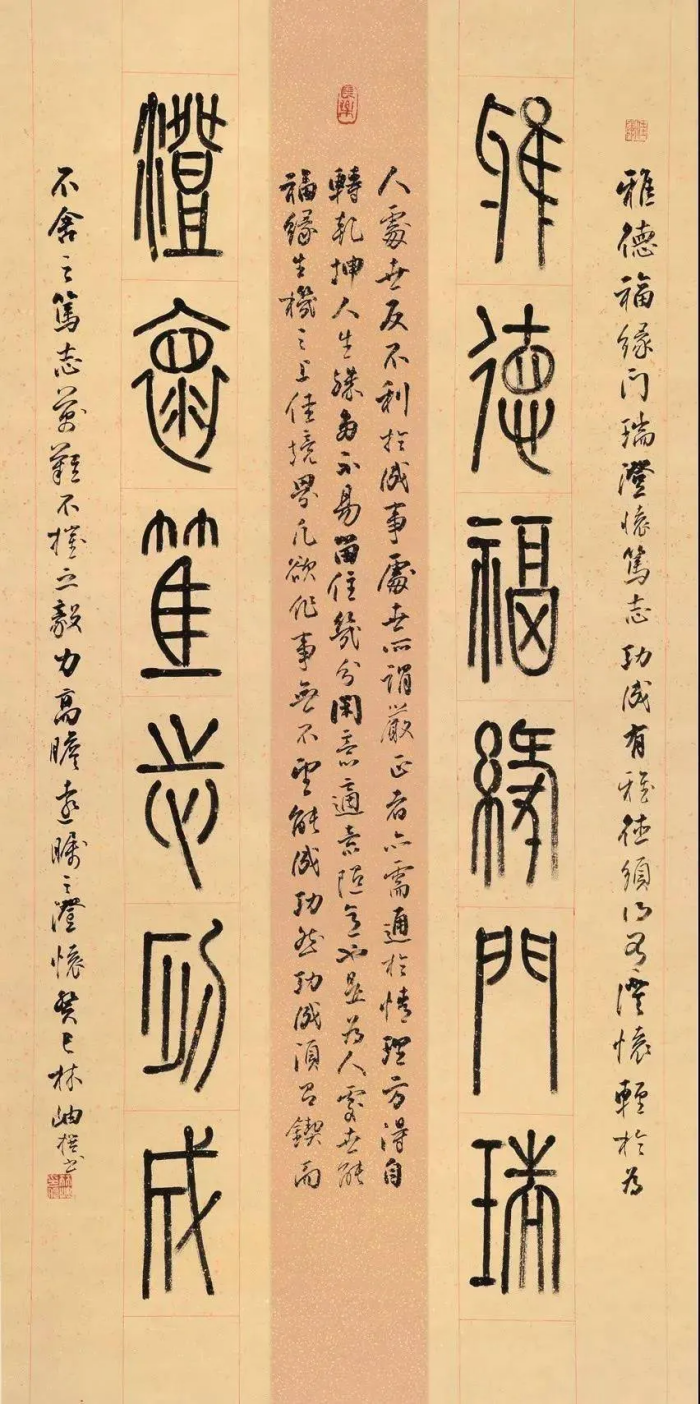 雅德福緣門瑞澄懷篤志功成有雅德須澄懷輕於為
雅德福緣門瑞
人處世反不利於成事處世所謂嚴正者亦需通於情理方得自
轉乾坤人生多不易留住幾分閑意適意隨意如是為人處世能
福緣生機之上佳境界凡欲作事無不望能成功然功成須以鍥而
澄懷篤志功成
不舍之篤志萬難不摧之毅力高瞻遠矚之澄懷癸巳林岫撰書